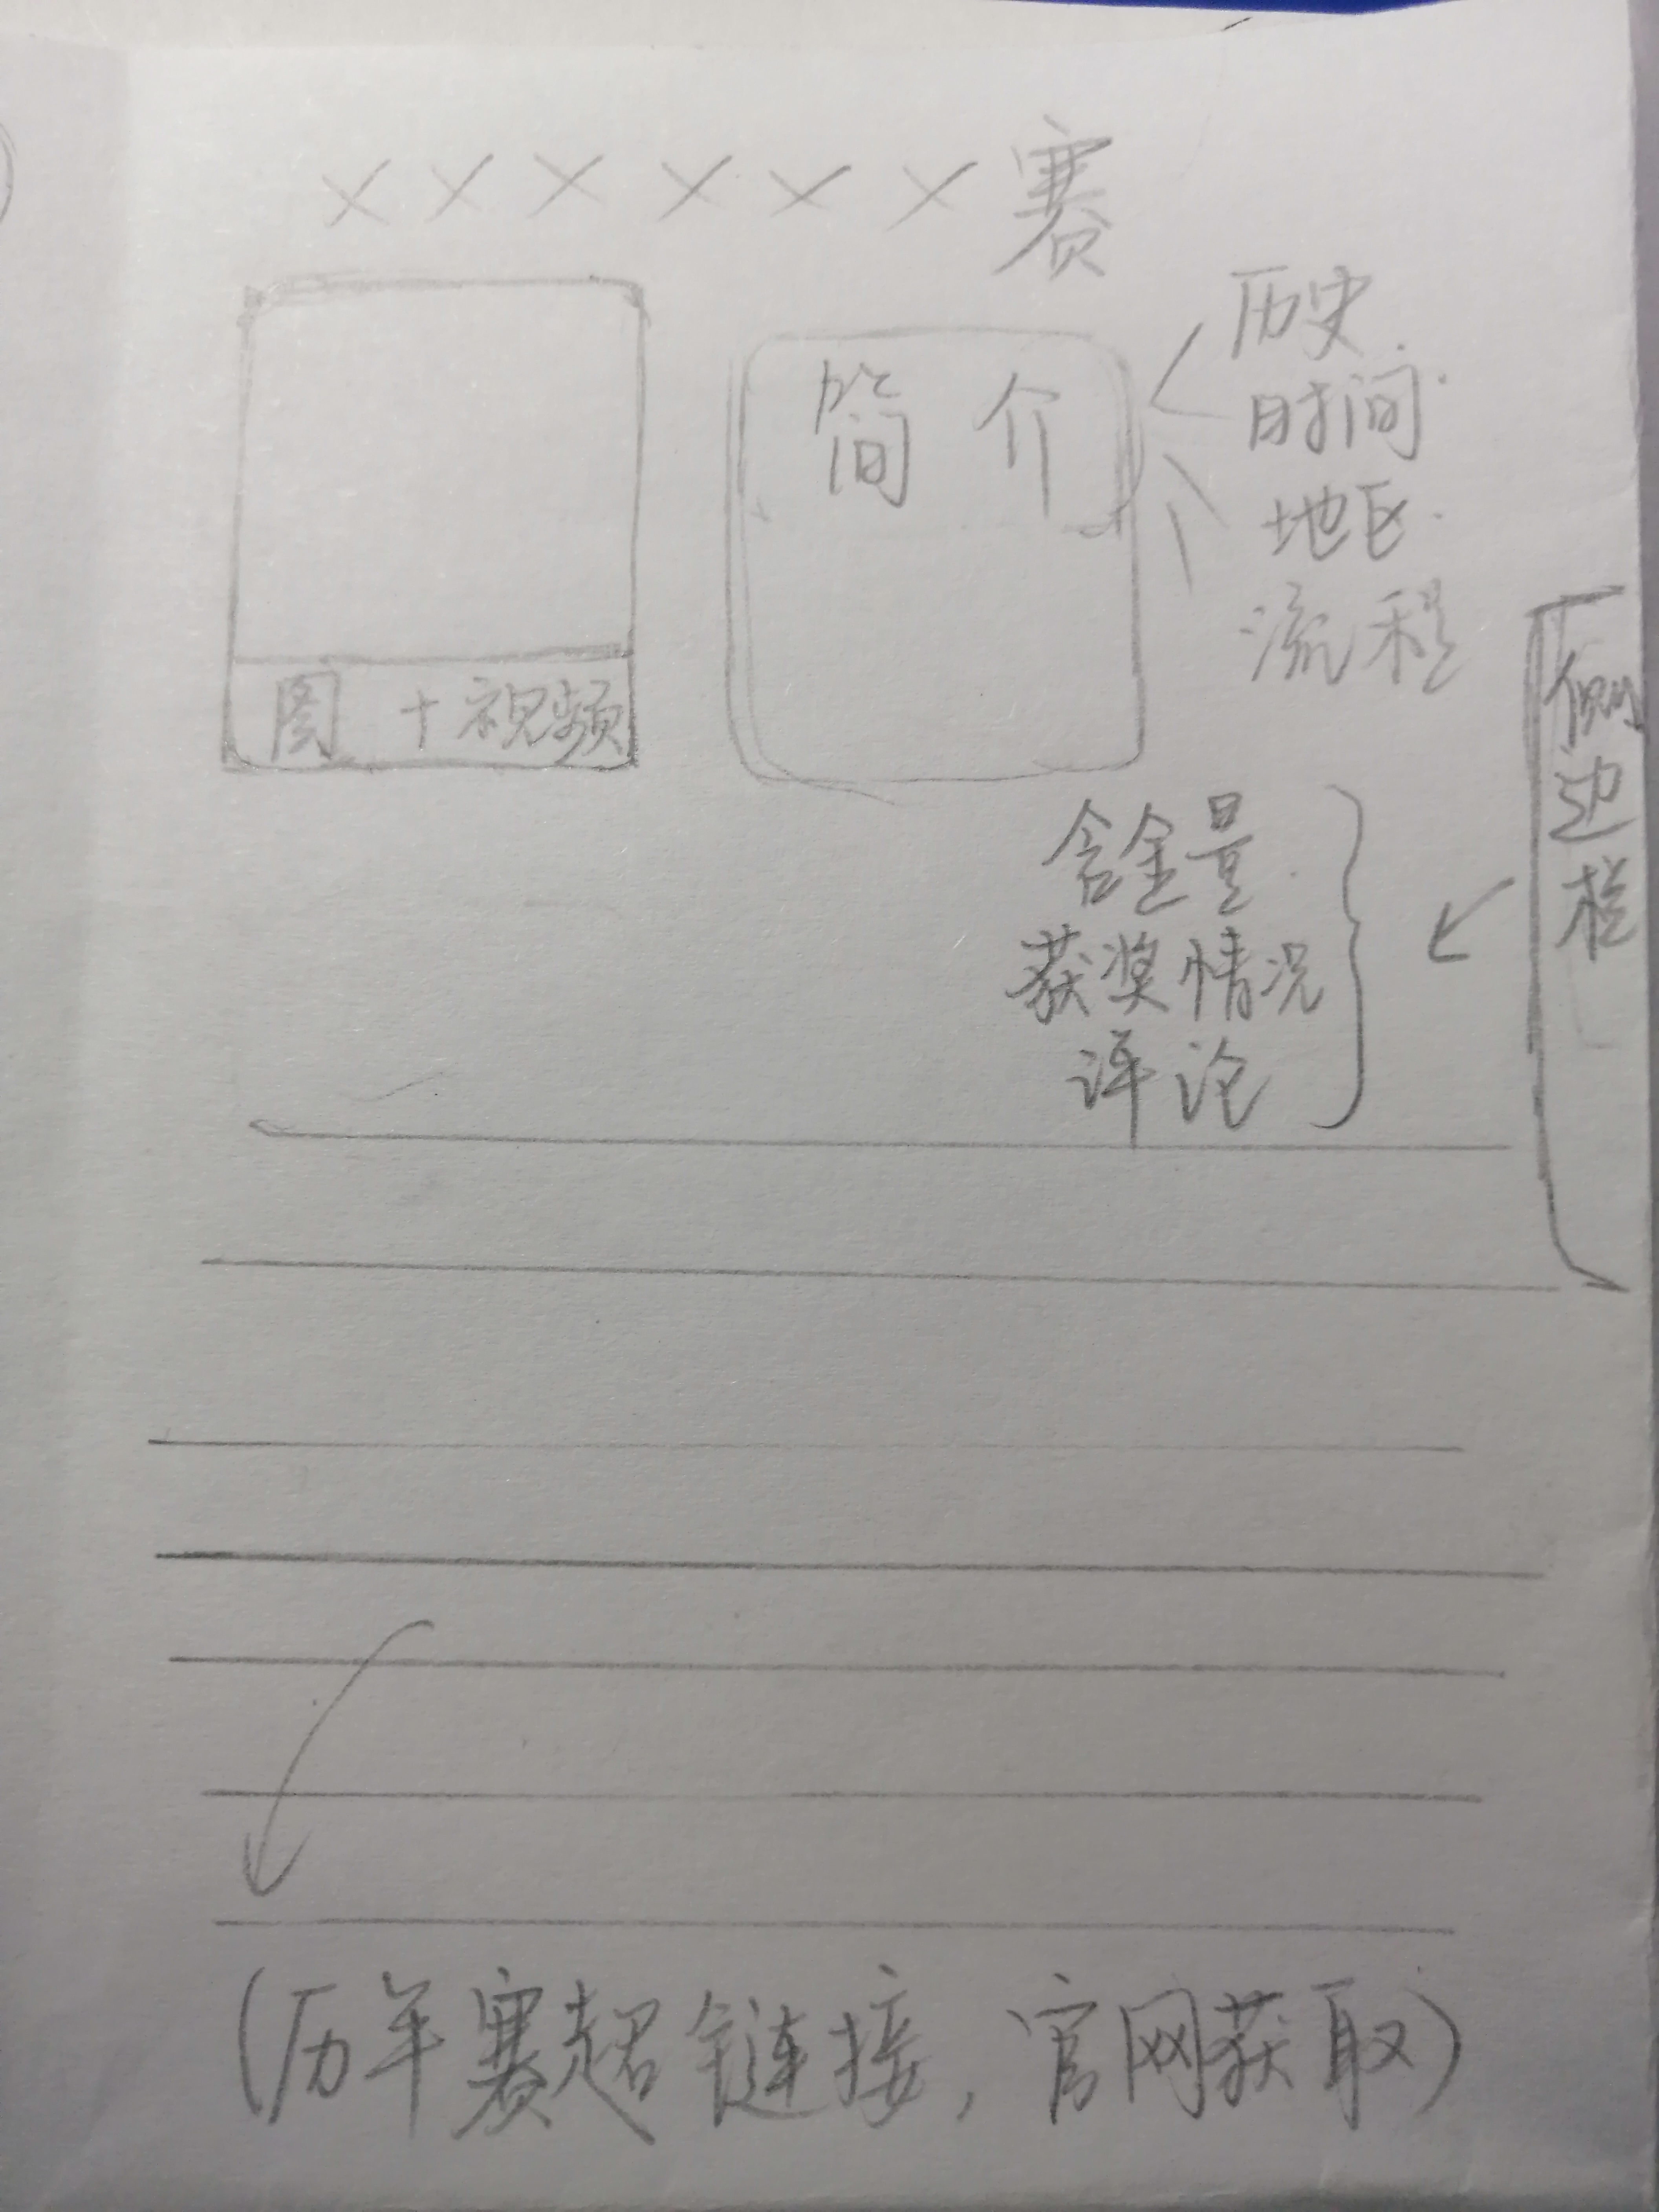 ××××××赛
图+视频
简介
历史
时间
地区
流程
侧边栏
含金量
获奖情况
评论
(历年赛超链接,官网获取)